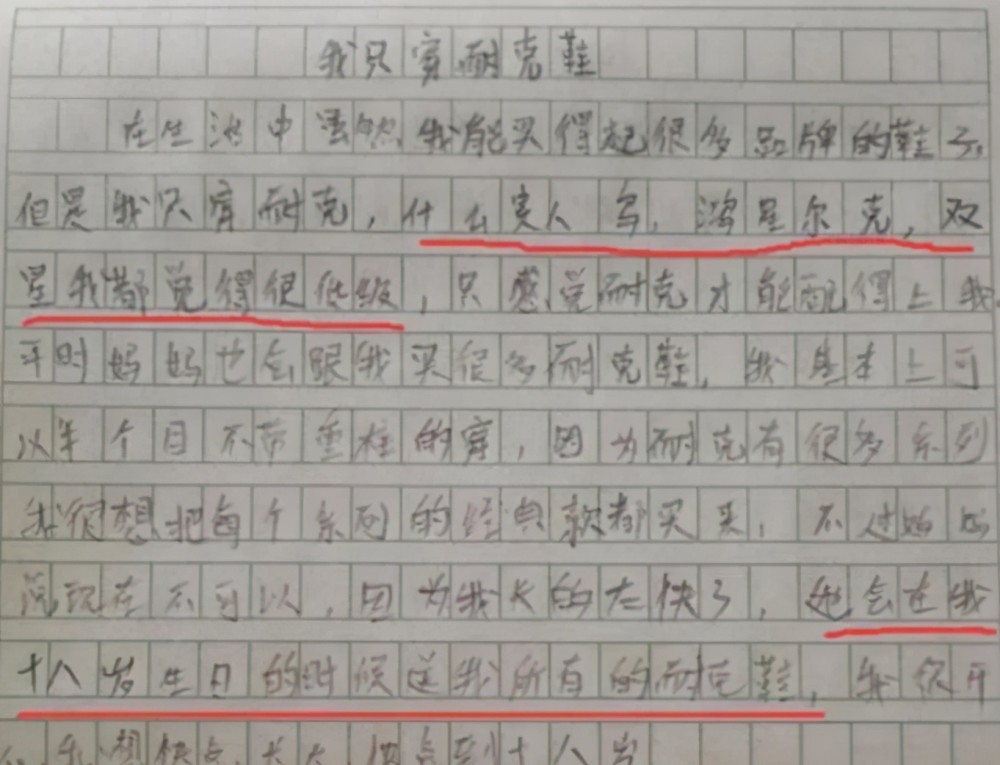 我只穿耐克鞋
在生活中虽然我能买得起很多品牌的鞋子,
但是我只穿耐克,什么贵人鸟,鸿星尔克,双
星我都觉得很低级,只感觉耐克才能配得上我
平时妈妈也会跟我买很多耐克鞋,我基本上可
以半个月不带重样的穿,因为耐克有很多系列
我很想把每个系列的经典款都买来,不过妈妈
说现在不可以,因为我长的太快了,她会在我
十八岁生日的时候送我所有的耐克鞋,我很开
心,我想快点长大,快点到十八岁